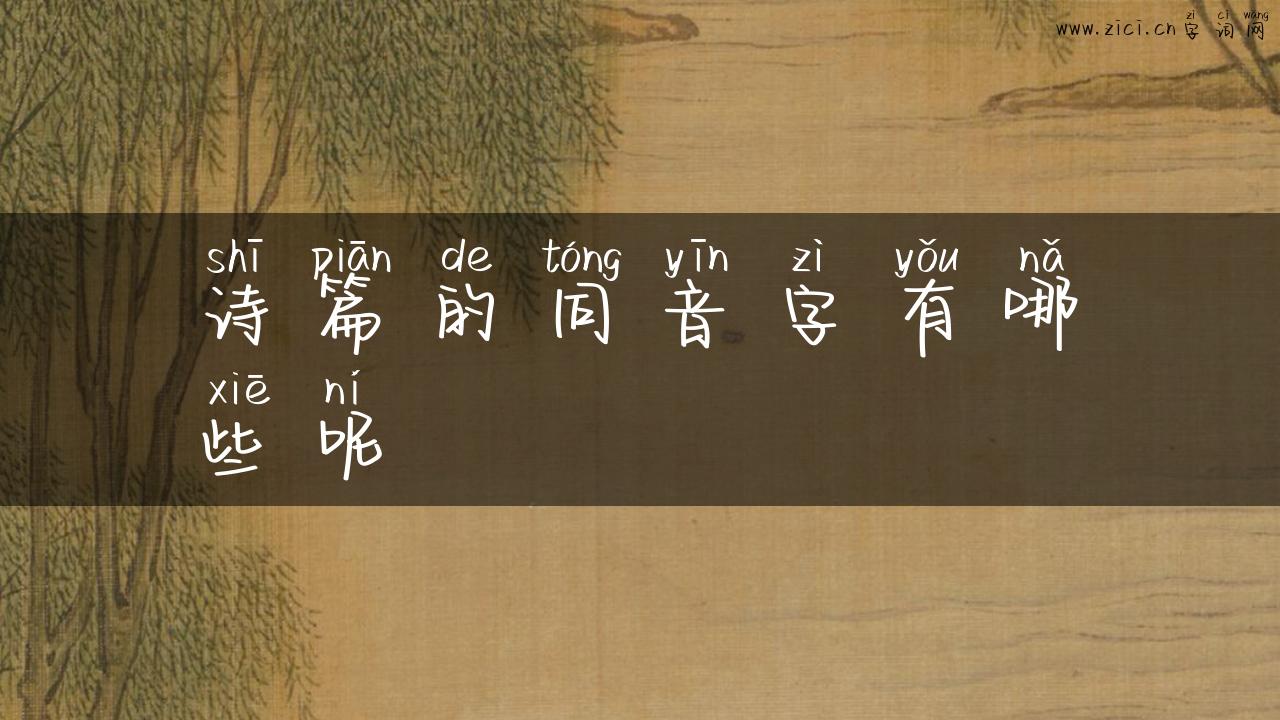 zì cí wǎng
www.zici.cn 字词网
shī piān de tóng yīn zì yǒu nǎ
诗篇的同音字有哪
xiē ní
些呢